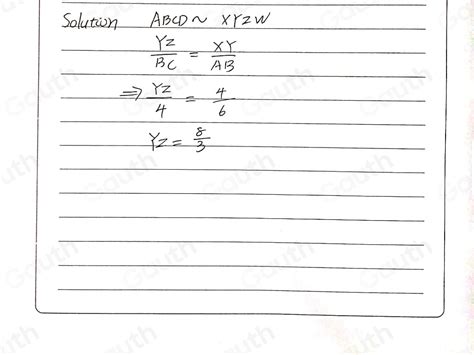 Solution ABCD ~ XYZW
YZ/BC = XY/AB
⇒ YZ/4 = 4/6
YZ = 8/3
Gauth